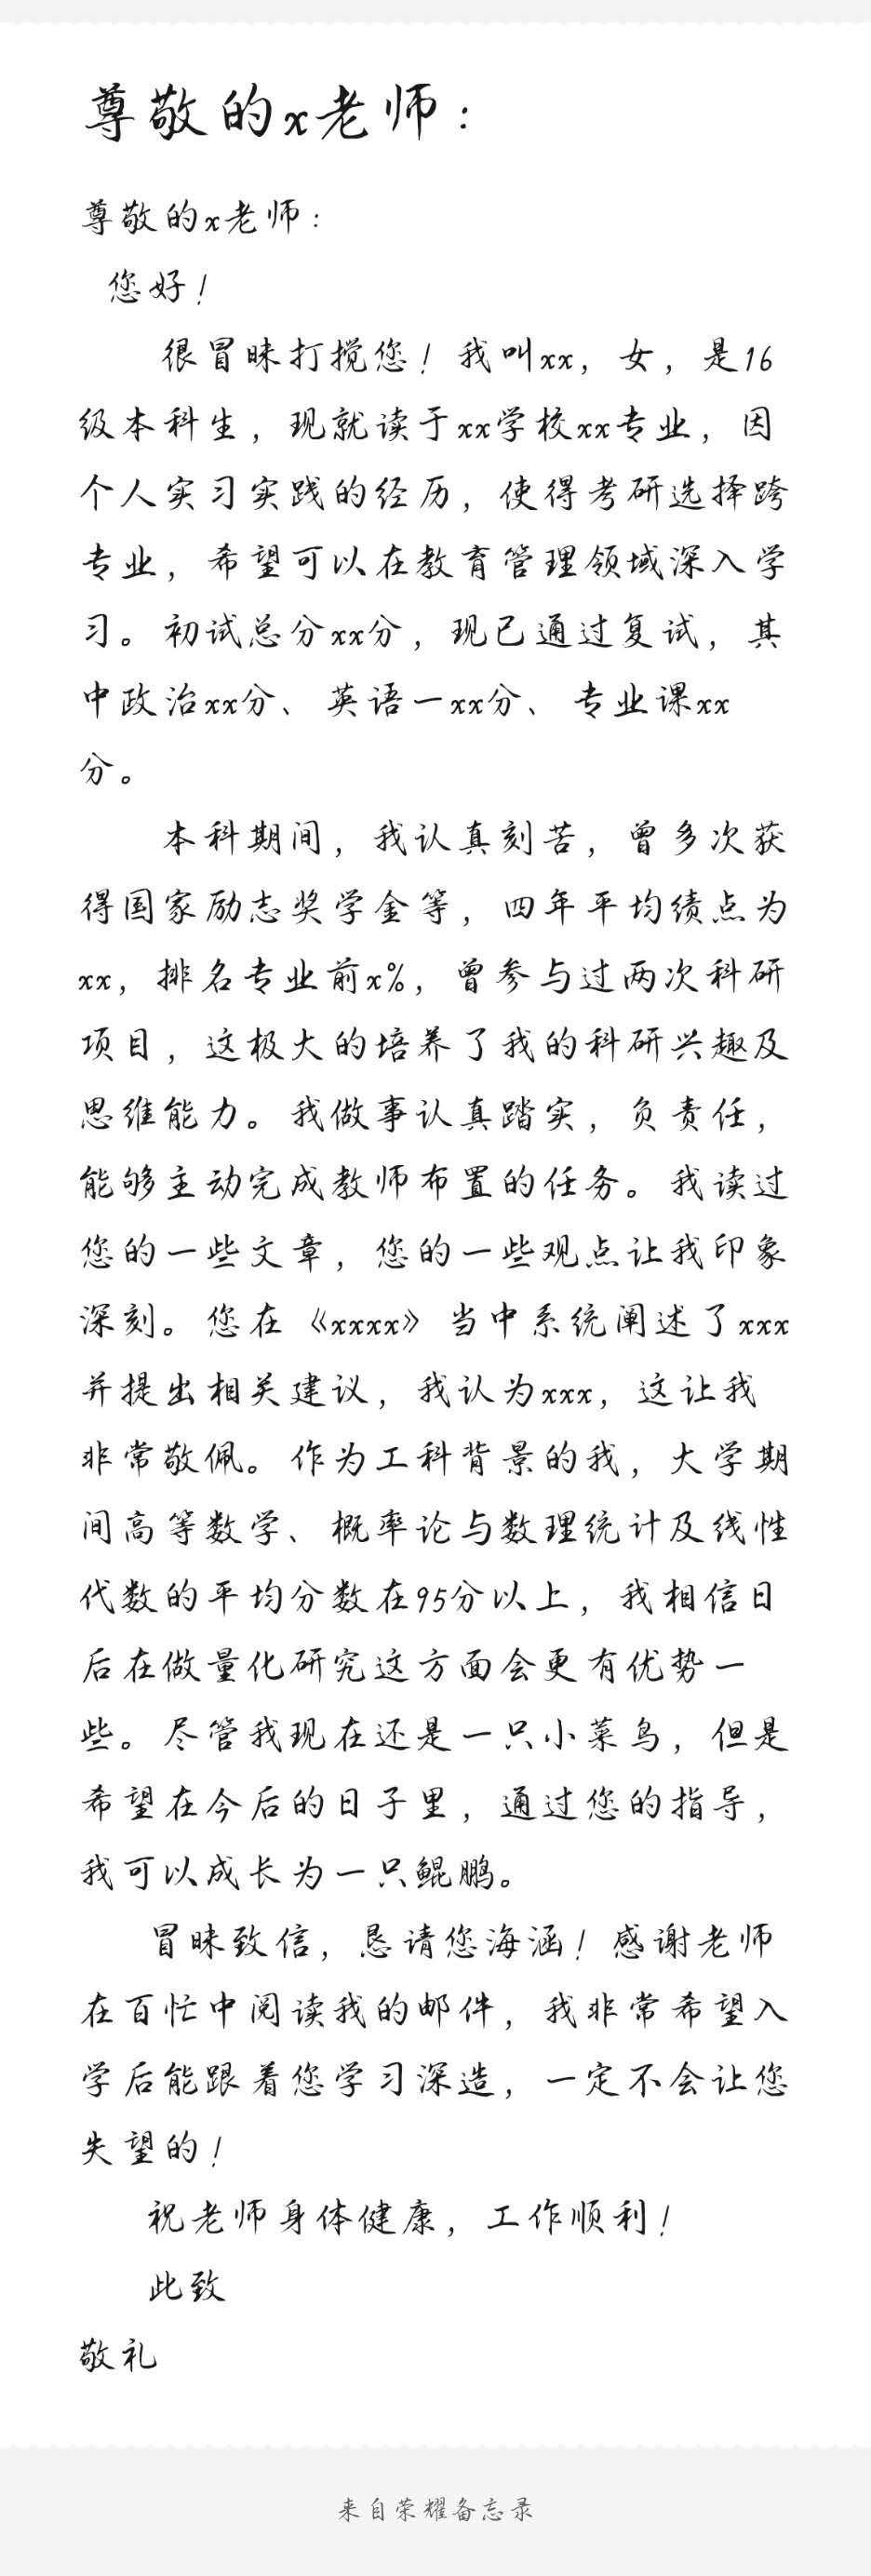 尊敬的x老师：
尊敬的x老师：
您好！
很冒昧打搅您！我叫xx，女，是16
级本科生，现就读于xx学校xx专业，因
个人实习实践的经历，使得考研选择跨
专业，希望可以在教育管理领域深入学
习。初试总分xx分，现已通过复试，其
中政治xx分、英语一xx分、专业课xx
分。
本科期间，我认真刻苦，曾多次获
得国家励志奖学金等，四年平均绩点为
xx，排名专业前x%，曾参与过两次科研
项目，这极大的培养了我的科研兴趣及
思维能力。我做事认真踏实，负责任，
能够主动完成教师布置的任务。我读过
您的一些文章，您的一些观点让我印象
深刻。您在《xxxx》当中系统阐述了xxx
并提出相关建议，我认为xxx，这让我
非常敬佩。作为工科背景的我，大学期
间高等数学、概率论与数理统计及线性
代数的平均分数在95分以上，我相信日
后在做量化研究这方面会更有优势一
些。尽管我现在还是一只小菜鸟，但是
希望在今后的日子里，通过您的指导，
我可以成长为一只鲲鹏。
冒昧致信，恳请您海涵！感谢老师
在百忙中阅读我的邮件，我非常希望入
学后能跟着您学习深造，一定不会让您
失望的！
祝老师身体健康，工作顺利！
此致
敬礼
来自荣耀备忘录